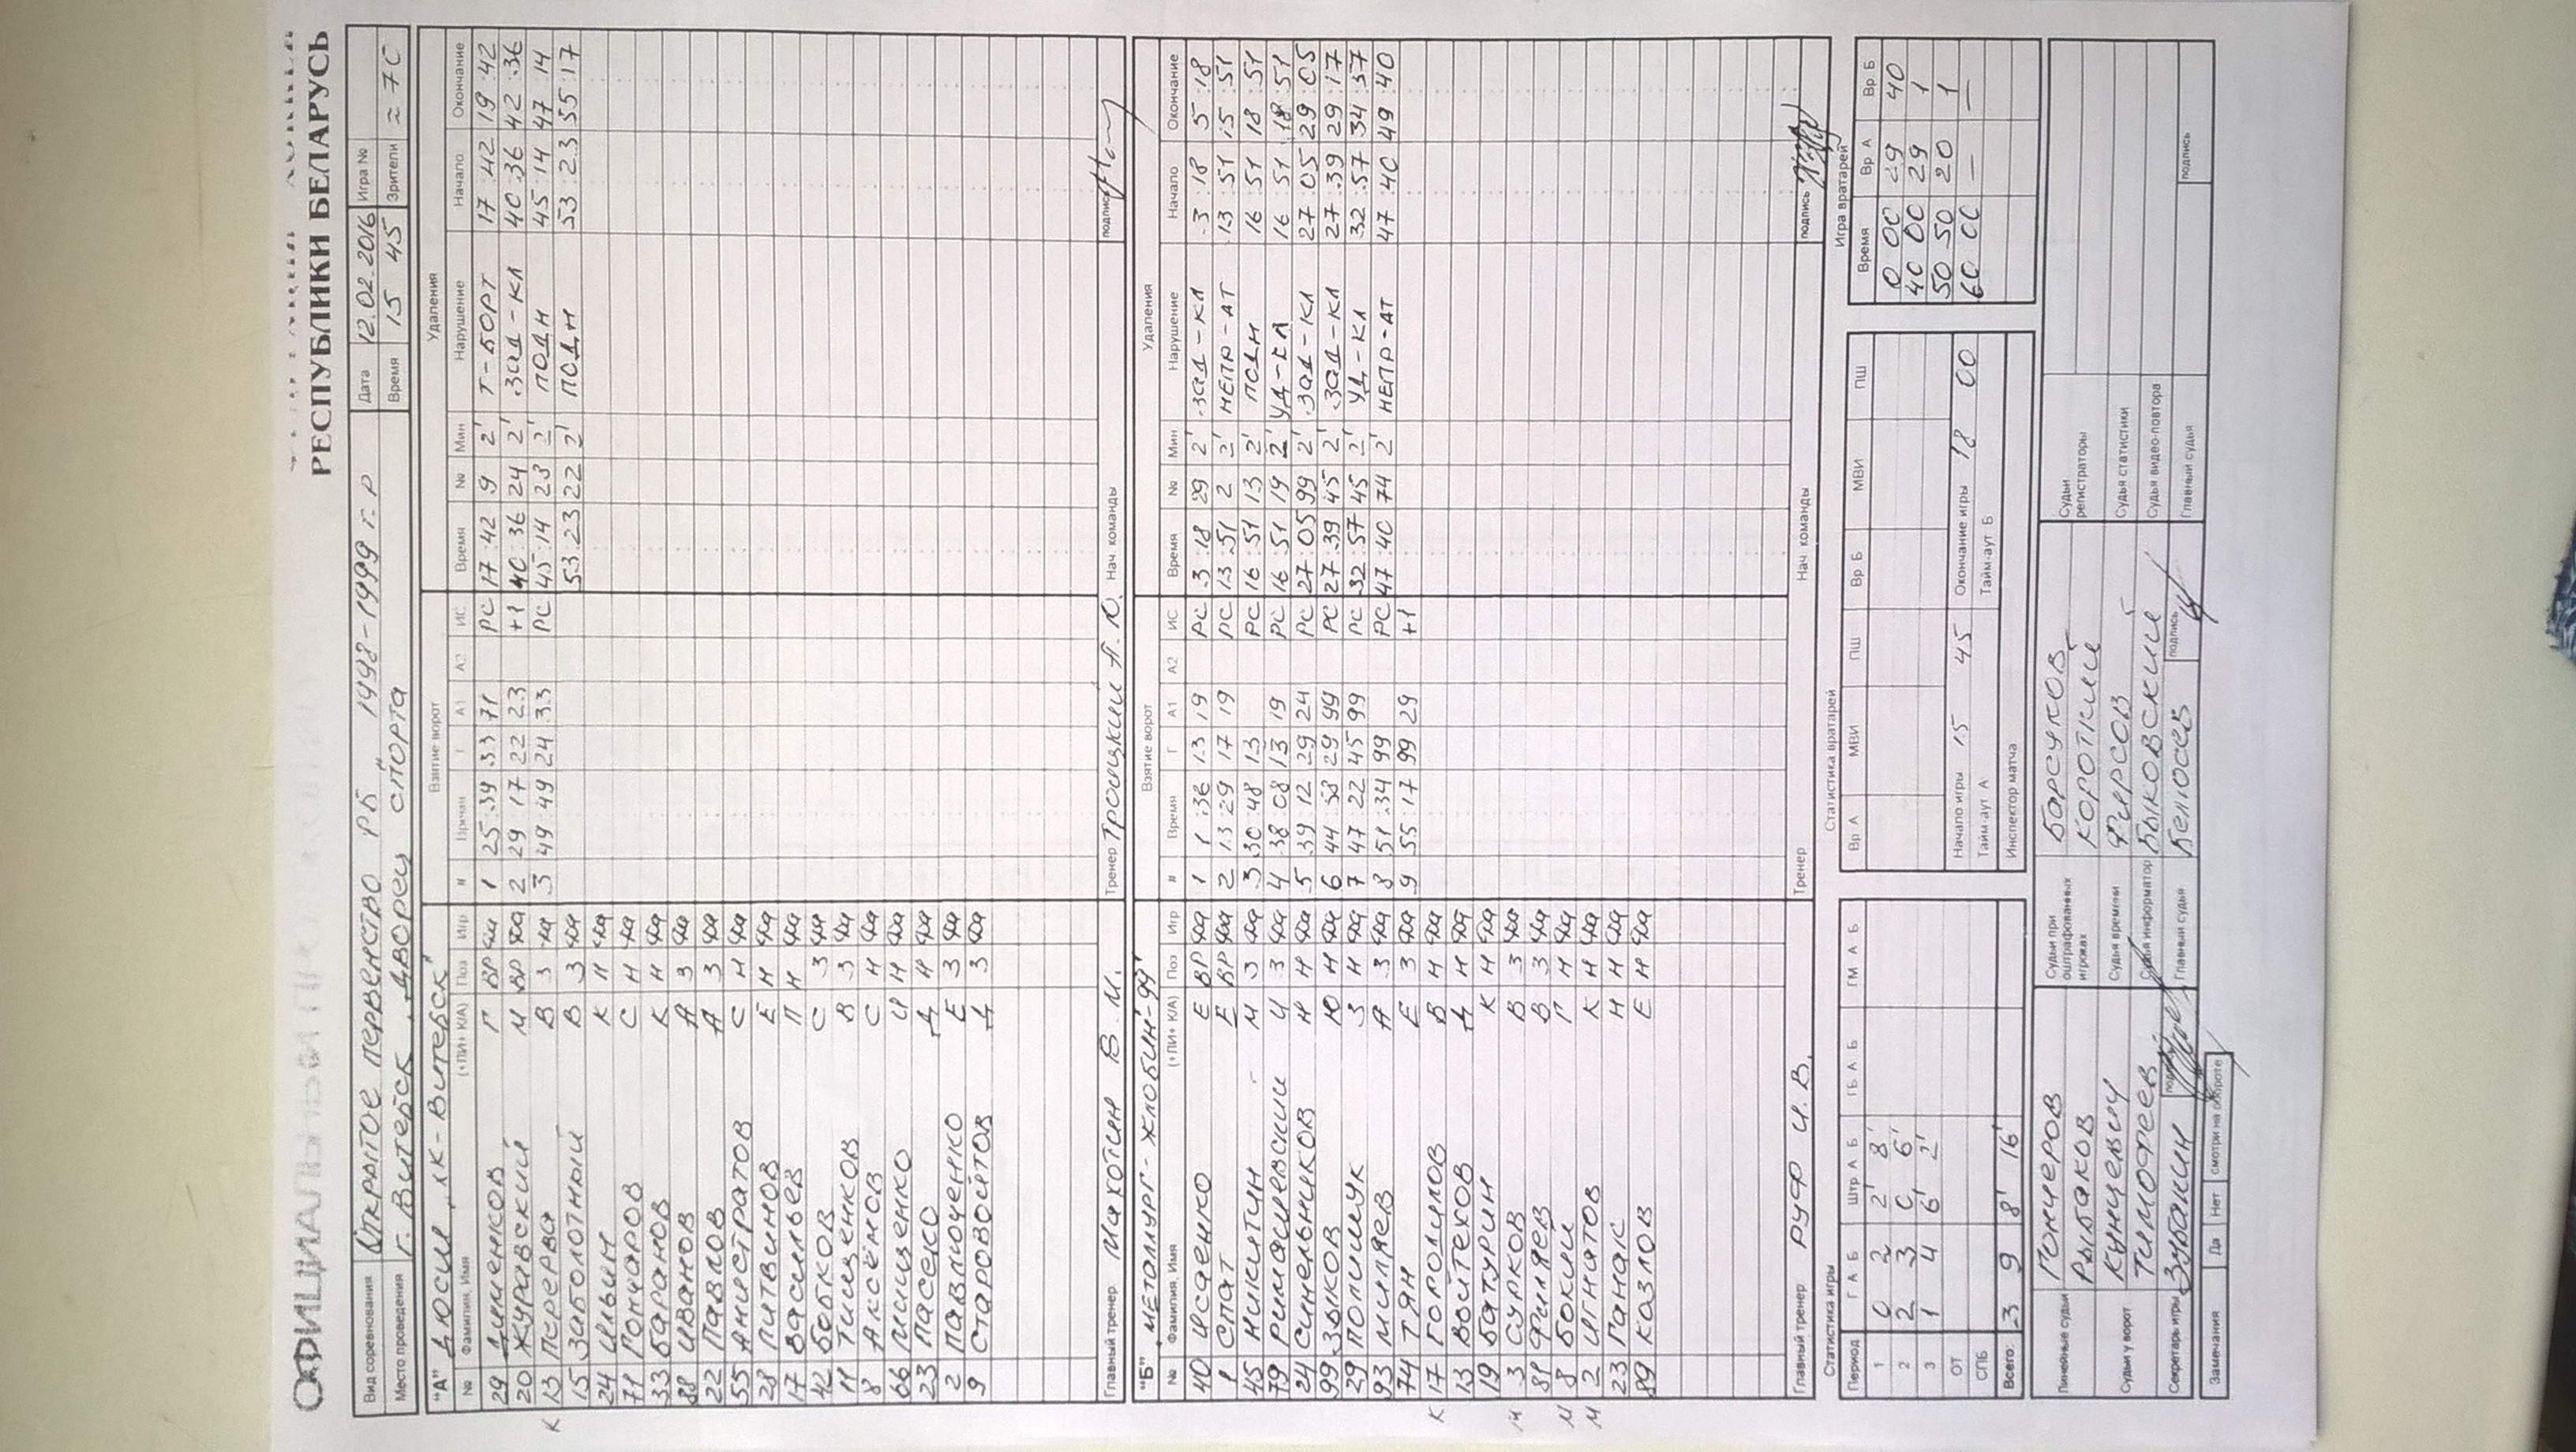 ОФИЦИАЛЬНЫЙ ПРОТОКОЛ
РЕСПУБЛИКИ БЕЛАРУСЬ
Вид соревнования Открытое первенство РБ 1998-1999 г.р Дата 12.02.2016 Игра №
Место проведения г. Витебск „Дворец спорта Время 15 45 Зрители ≈ 70
"А" ДЮСШ „ХК-Витебск" Взятие ворот Удаления
№ Фамилия, Имя (+ПИ+ К/А) Поз Игр # Время Г А1 А2 ИС Время № Мин Нарушение Начало Окончание
29 Дименков Г ВР да 1 25:39 33 71 РС 17:42 9 2' Т-БОРТ 17:42 19:42
20 Журавский М ВР да 2 29 17 22 23 +1 40:36 24 2' ЗАД-КЛ 40:36 42:36
К 13 Перерва В З да 3 49 49 24 33 РС 45:14 23 2' ПОДН 45:14 47:14
15 Заболотный В З да 53:23 22 2' ПОДН 53:23 55:17
24 Ильин К Н да
71 Гончаров С Н да
33 Баранов К Н да
88 Иванов А З да
22 Павлов А З да
55 Анистратов С Н да
28 Литвинов Е Н да
17 Васильев П Н да
42 Бобков С З да
11 Тищенков В З да
8 Аксёнов С Н да
66 Мищенко И Н да
23 Пасеко Д Н да
2 Павлюченко Е З да
9 Старовойтов Д З да
Главный тренер Махотин В. М. Тренер Троицкий А. Ю. Нач команды подпись
"Б" „МЕТАЛЛУРГ-ЖЛОБИН-99" Взятие ворот Удаления
№ Фамилия, Имя (+ПИ+ К/А) Поз Игр # Время Г А1 А2 ИС Время № Мин Нарушение Начало Окончание
40 Исаенко Е ВР да 1 1:36 13 19 РС 3:18 29 2' ЗАД-КЛ 3:18 5:18
1 Спат Е ВР да 2 13:29 17 19 РС 13:51 2 2' НЕПР-АТ 13:51 15:51
45 Никитин М З да 3 30:48 13 РС 16:51 13 2' ПОДН 16 51 18:51
79 Римашевский И З да 4 38:08 13 19 РС 16:51 19 2' УД-КЛ 16:51 18:51
24 Синельников И Н да 5 39 12 29 24 РС 27:05 99 2' ЗАД-КЛ 27:05 29:05
99 Зыков Ю Н да 6 44:58 29 99 РС 27:39 45 2' ЗАД-КЛ 27:39 29:17
29 Полищук З Н да 7 47 22 45 99 РС 32:57 45 2' УД-КЛ 32:57 34:57
93 Миляев А З да 8 51:34 99 РС 47:40 74 2' НЕПР-АТ 47:40 49:40
74 Тян Е З да 9 55:17 99 29 +1
К 17 Городулов В Н да
13 Войтехов Д Н да
19 Батурин К Н да
М 3 Сурков В З да
81 Филяев В З да
М 8 Бокий Г Н да
М 2 Игнатов К Н да
23 Ганак Н Н да
89 Казлов Е Н да
Главный тренер РУФ И. В. Тренер Нач команды подпись
Статистика игры Статистика вратарей Игра вратарей
Период Г А Б Штр А Б ГБ А Б ГМ А Б Вр А МВИ ПШ Вр Б МВИ ПШ Время Вр А Вр Б
1 0 2 2' 8' 0 00 29 40
2 2 3 0 6' 40 00 29 1
3 1 4 6' 2' 50 50 20 1
ОТ Начало игры 15 45 Окончание игры 18 00 60 00 — —
СПБ Тайм-аут А Тайм-аут Б
Всего: 3 9 8' 16' Инспектор матча
Линейные судьи Гончеров Судьи при оштрафованных игроках Барсуков Судьи регистраторы
Рыбаков Короткий
Судьи у ворот Кунцевич Судья времени Фирсов Судья статистики
Тимофеев Судья информатор Быковский Судья видео-повтора
Секретарь игры Зубакин подпись Главный судья Белюсев подпись Главный судья подпись
Замечания Да Нет смотри на обороте